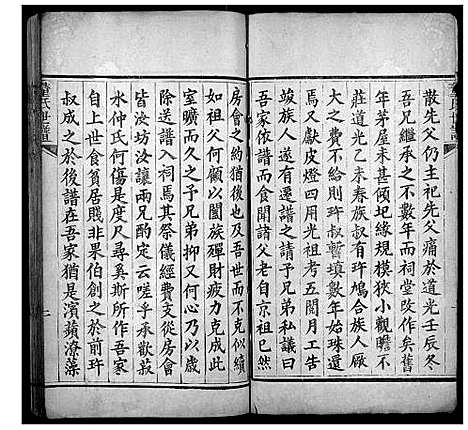 散先父仍主祀先父痛於道光壬辰冬
吾兄繼承之不數年而祠堂改作矣舊
年茅屋未甚傾圮緣規模狹小觀瞻不
莊道光乙未春族叔有玶鳩合族人厥
大之費不給則玶叔暫填數年始珠還
焉又獻皮燈四用光祖考五閲月工告
竣族人遂有選譜之請予兄弟私議曰
吾家依譜而食聞諸父老自京祖已然
房會之約猶古也及吾世而不克似續
如祖父何顧以闔族殫財疲力克成此
室曠而久之予兄弟抑又何心乃以歲
除送譜入祠焉其祭儀經費支從房會
皆汝坊汝讓兩兄酌定云嗟乎承歡菽
水仲氏何傷是度尺尋奚斯所作吾家
自上世食貧居賤非果伯創之於前玶
叔成之於後譜在吾家猶是濱蘋潦藻
二